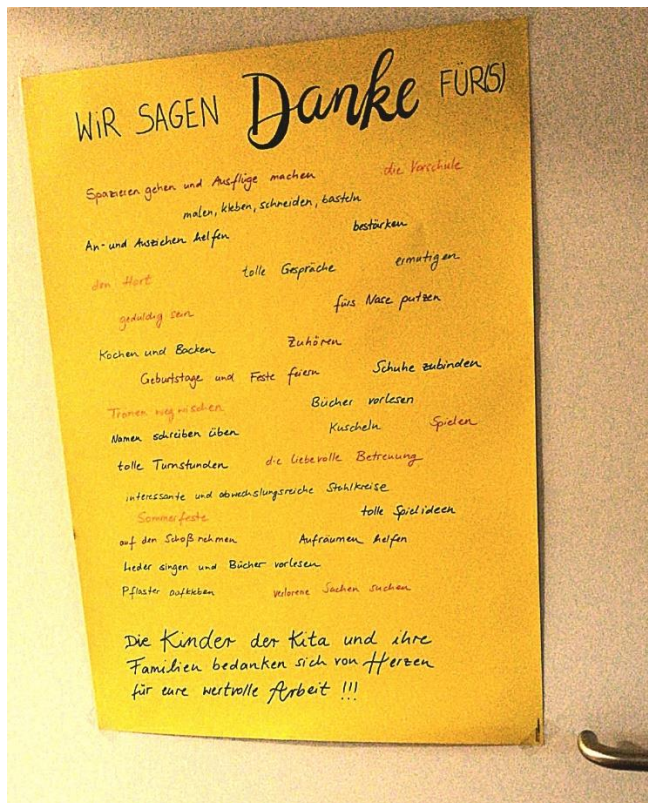 WiR SAGEN Danke FÜR(S)
Spazieren gehen und Ausflüge machen die Vorschule
malen, kleben, schneiden, basteln
An- und Ausziehen helfen bestärken
den Hort tolle Gespräche ermutigen
geduldig sein fürs Nase putzen
Kochen und Backen Zuhören
Geburtstage und Feste feiern Schuhe zubinden
Tränen wegwischen Bücher vorlesen
Namen schreiben üben Kuscheln Spielen
tolle Turnstunden die liebevolle Betreuung
interessante und abwechslungsreiche Stuhlkreise
Sommerfeste tolle Spielideen
auf den Schoß nehmen Aufräumen helfen
Lieder singen und Bücher vorlesen
Pflaster aufkleben verlorene Sachen suchen
Die Kinder der Kita und ihre
Familien bedanken sich von Herzen
für eure wertvolle Arbeit !!!